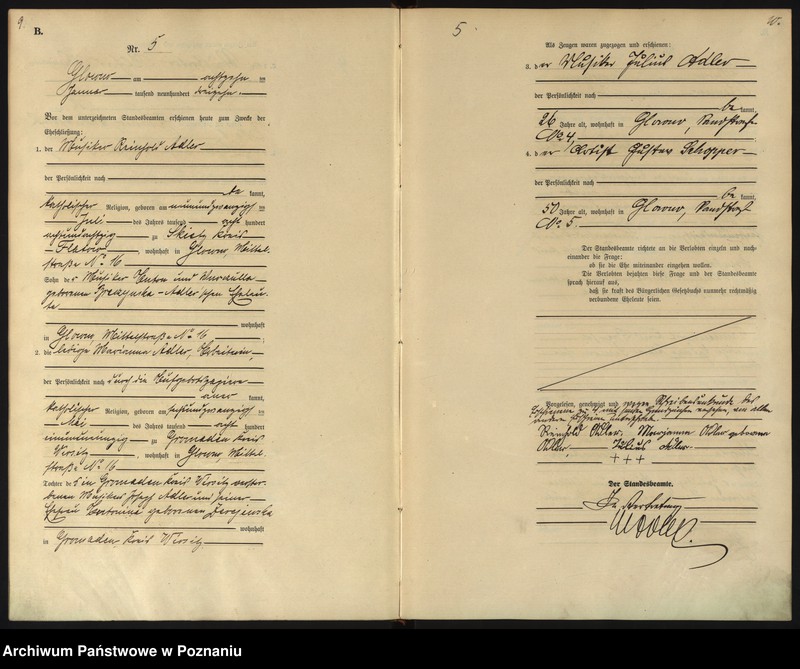 9.
B.
Nr. 5
Glowno am achtzehn ten
Januar tausend neunhundert dreizehn.
Vor dem unterzeichneten Standesbeamten erschienen heute zum Zwecke der
Eheschließung:
1. der Musiker Reinhold Adler
der Persönlichkeit nach
be kannt,
katholischer Religion, geboren am neunundzwanzigsten
Juli des Jahres tausend acht hundert
achtundachtzig zu Skietz Kreis
Flatow, wohnhaft in Glowno, Mittel-
straße No 16
Sohn des Musiker Anton und
geborenen - Adler'schen Eheleu-
te
wohnhaft
in Glowno, Mittelstraße No 16;
2. die ledige Marianna Adler, Arbeiterin,
der Persönlichkeit nach durch die Aufgebotspapiere
kannt,
katholischer Religion, geboren am sechsundzwanzigsten
Mai des Jahres tausend acht hundert
neunundneunzig zu Gromaden Kreis
Wirsitz, wohnhaft in Glowno, Mittel-
straße No 16
Tochter des in Gromaden Kreis Wirsitz verstor-
benen Musikers Josef Adler und seiner
Ehefrau geborenen
wohnhaft
in Gromaden, Kreis Wirsitz
5
10.
Als Zeugen waren zugezogen und erschienen:
3. der Musiker Julius Adler
der Persönlichkeit nach
be kannt,
26 Jahre alt, wohnhaft in Glowno, Sandstraße
No 4,
4. der Artist Gustav Schopper
der Persönlichkeit nach
be kannt,
50 Jahre alt, wohnhaft in Glowno, Sandstraße
No 5.
Der Standesbeamte richtete an die Verlobten einzeln und nach-
einander die Frage:
ob sie die Ehe miteinander eingehen wollen.
Die Verlobten bejahten diese Frage und der Standesbeamte
sprach hierauf aus,
daß sie kraft des Bürgerlichen Gesetzbuchs nunmehr rechtmäßig
verbundene Eheleute seien.
Vorgelesen, genehmigt und wegen Schreibensunkunde des
Erschienenen zu 4 mit seinem Handzeichen versehen, von allen
anderen unterschrieben
Reinhold Adler, Marjanna Adler geborene
Adler, Julius Adler.
+ + +
Der Standesbeamte.
In Vertretung
Archiwum Państwowe w Poznaniu